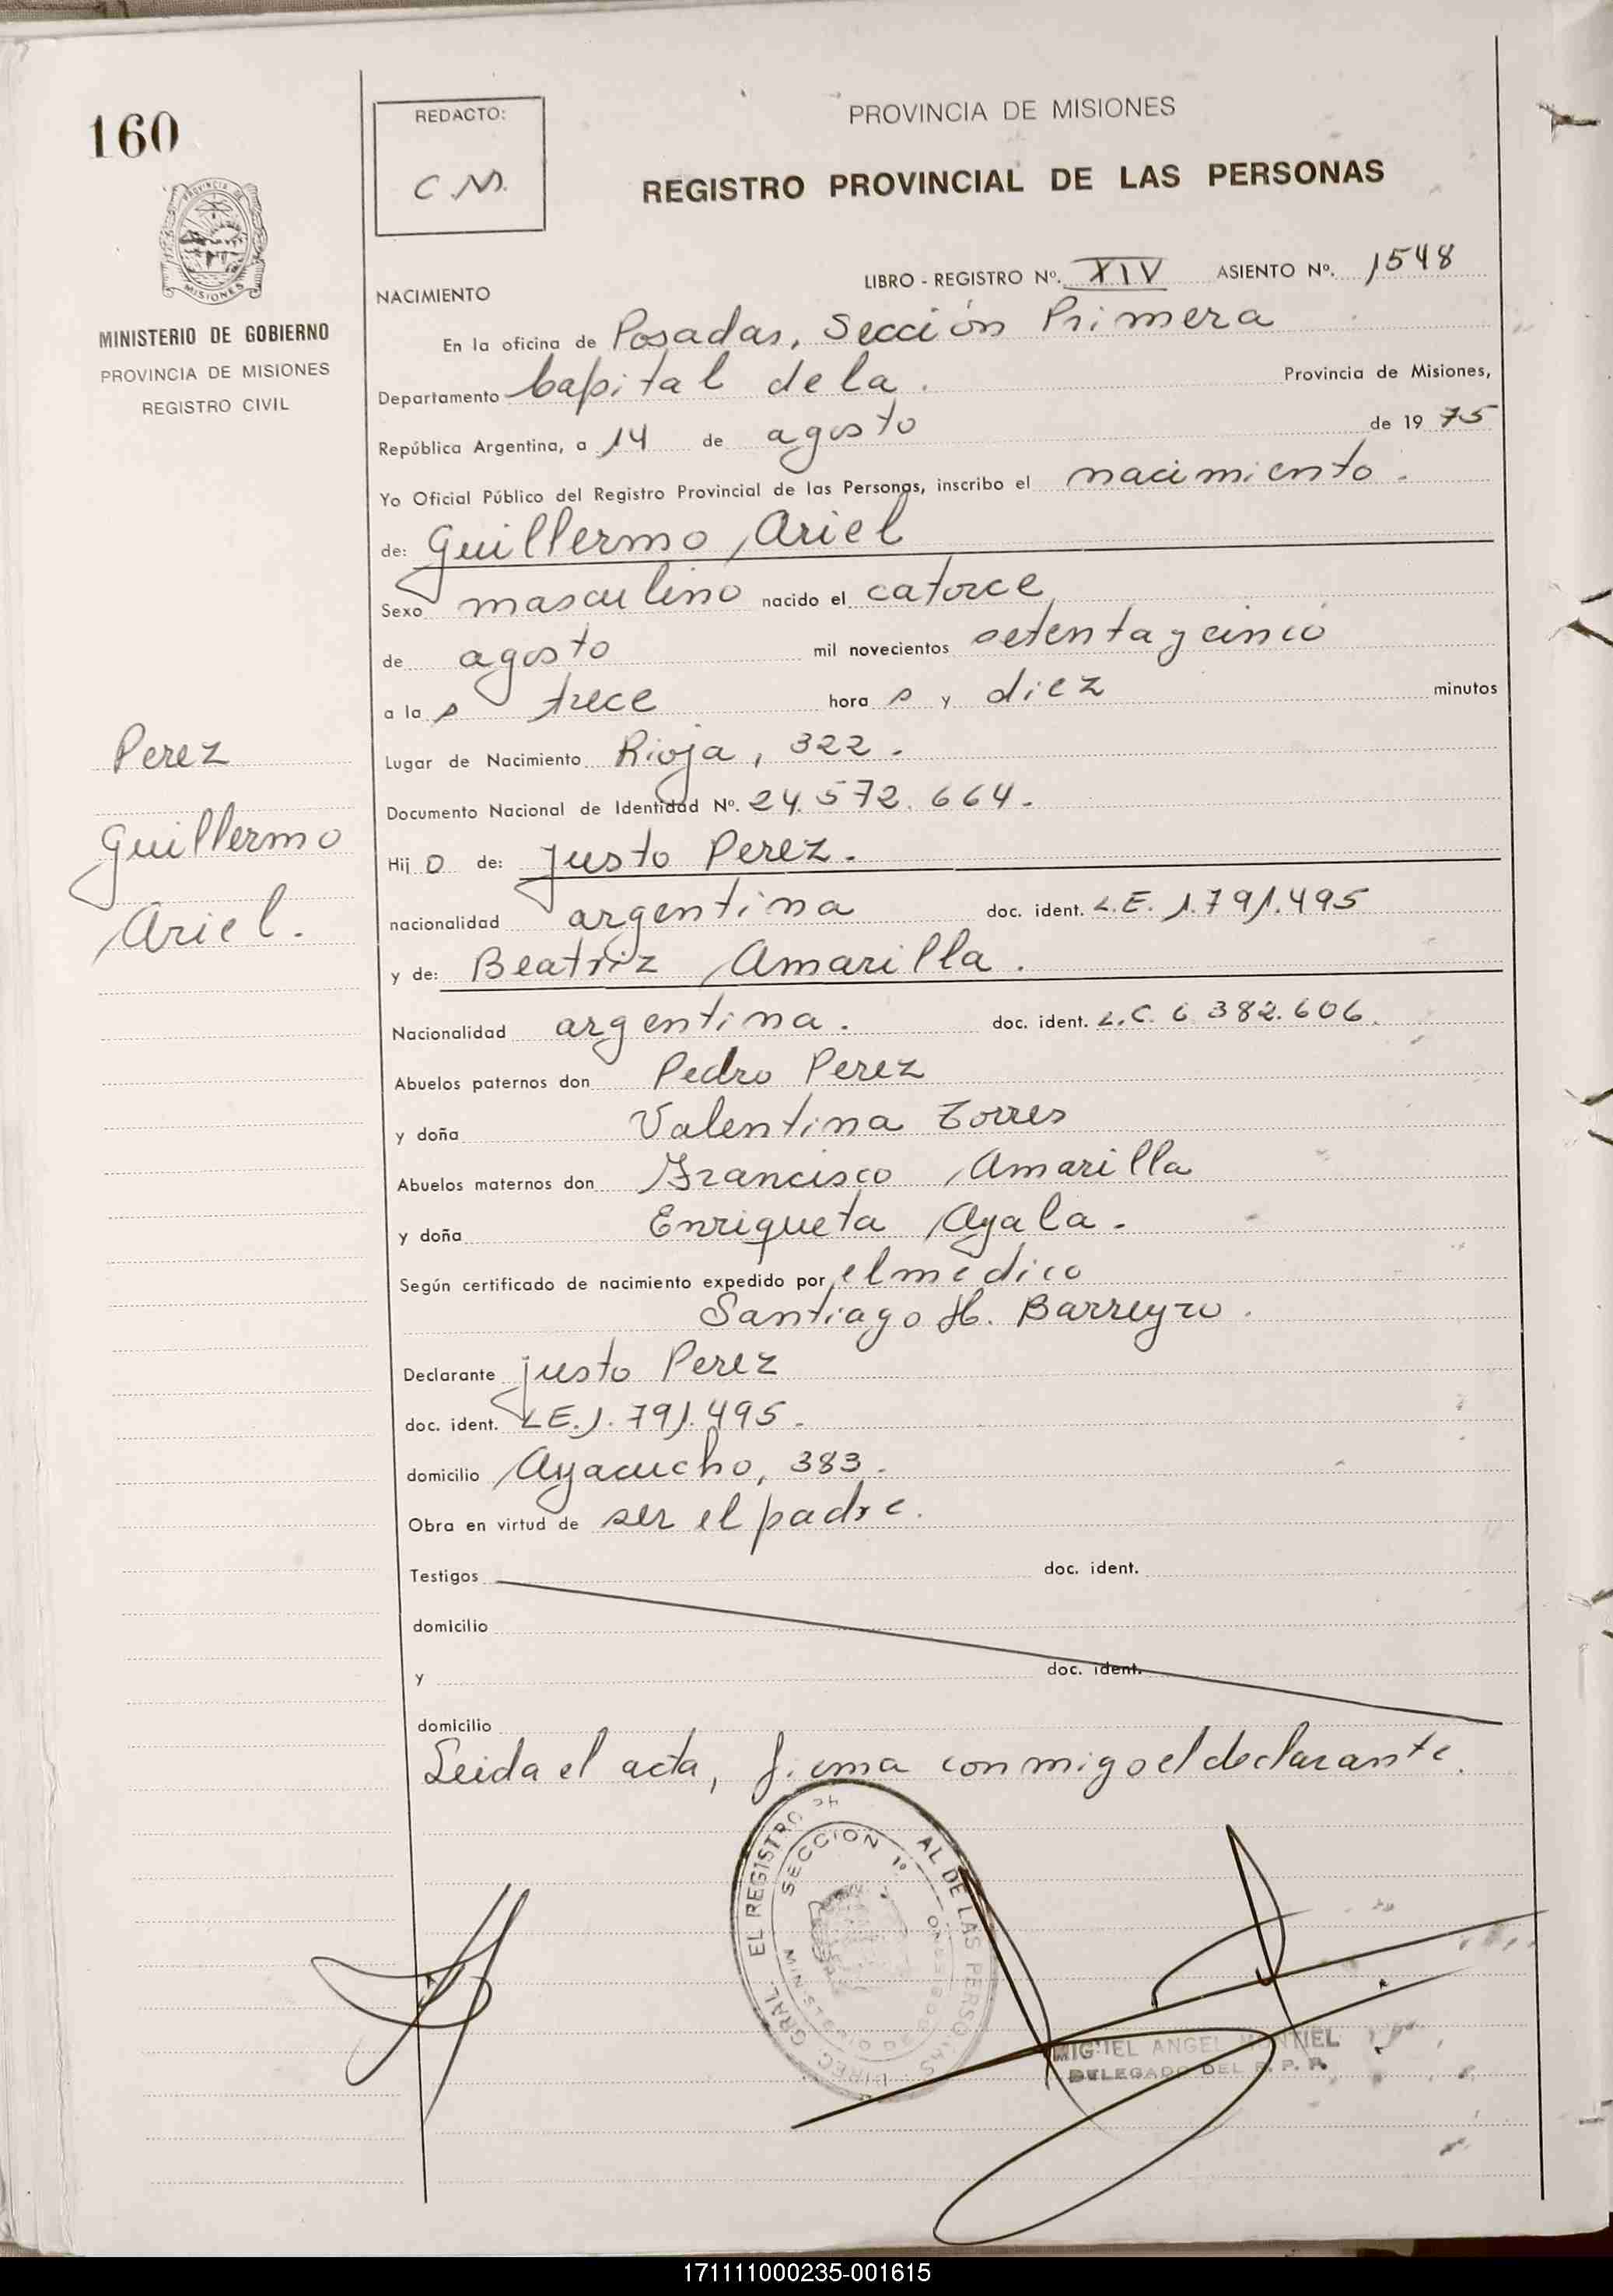 160
REDACTO:
C.M.
PROVINCIA DE MISIONES
REGISTRO PROVINCIAL DE LAS PERSONAS
MISIONES
MINISTERIO DE GOBIERNO
PROVINCIA DE MISIONES
REGISTRO CIVIL
LIBRO - REGISTRO Nº. XIV ASIENTO Nº. 1548
NACIMIENTO
En la oficina de Posadas, Sección Primera
Departamento Capital de la. Provincia de Misiones,
República Argentina, a 14 de agosto de 1975
Yo Oficial Público del Registro Provincial de las Personas, inscribo el nacimiento.
de: Guillermo Ariel
Sexo masculino nacido el catorce
de agosto mil novecientos setenta y cinco
a las trece horas y diez minutos
Lugar de Nacimiento Rioja, 322.
Documento Nacional de Identidad Nº. 24.572.664.
Hijo de: Justo Perez.
nacionalidad argentina doc. ident. L.E. 1.791.495
y de: Beatriz Amarilla.
Nacionalidad argentina. doc. ident. L.C. 6.382.606.
Abuelos paternos don Pedro Perez
y doña Valentina Torres
Abuelos maternos don Francisco Amarilla
y doña Enriqueta Ayala.
Según certificado de nacimiento expedido por el médico
Santiago H. Barreyro.
Declarante Justo Perez
doc. ident. L.E. 1.791.495.
domicilio Ayacucho, 383.
Obra en virtud de ser el padre.
Testigos doc. ident.
domicilio
y doc. ident.
domicilio
Leida el acta, firma conmigo el declarante.
Perez
Guillermo
Ariel.
DIREC. GRAL. EL REGISTRO AL DE LAS PERSONAS
SECCION 1º
MINISTERIO DE GOBIERNO
MIGUEL ANGEL MONTIEL
DELEGADO DEL R. P. P.
171111000235-001615